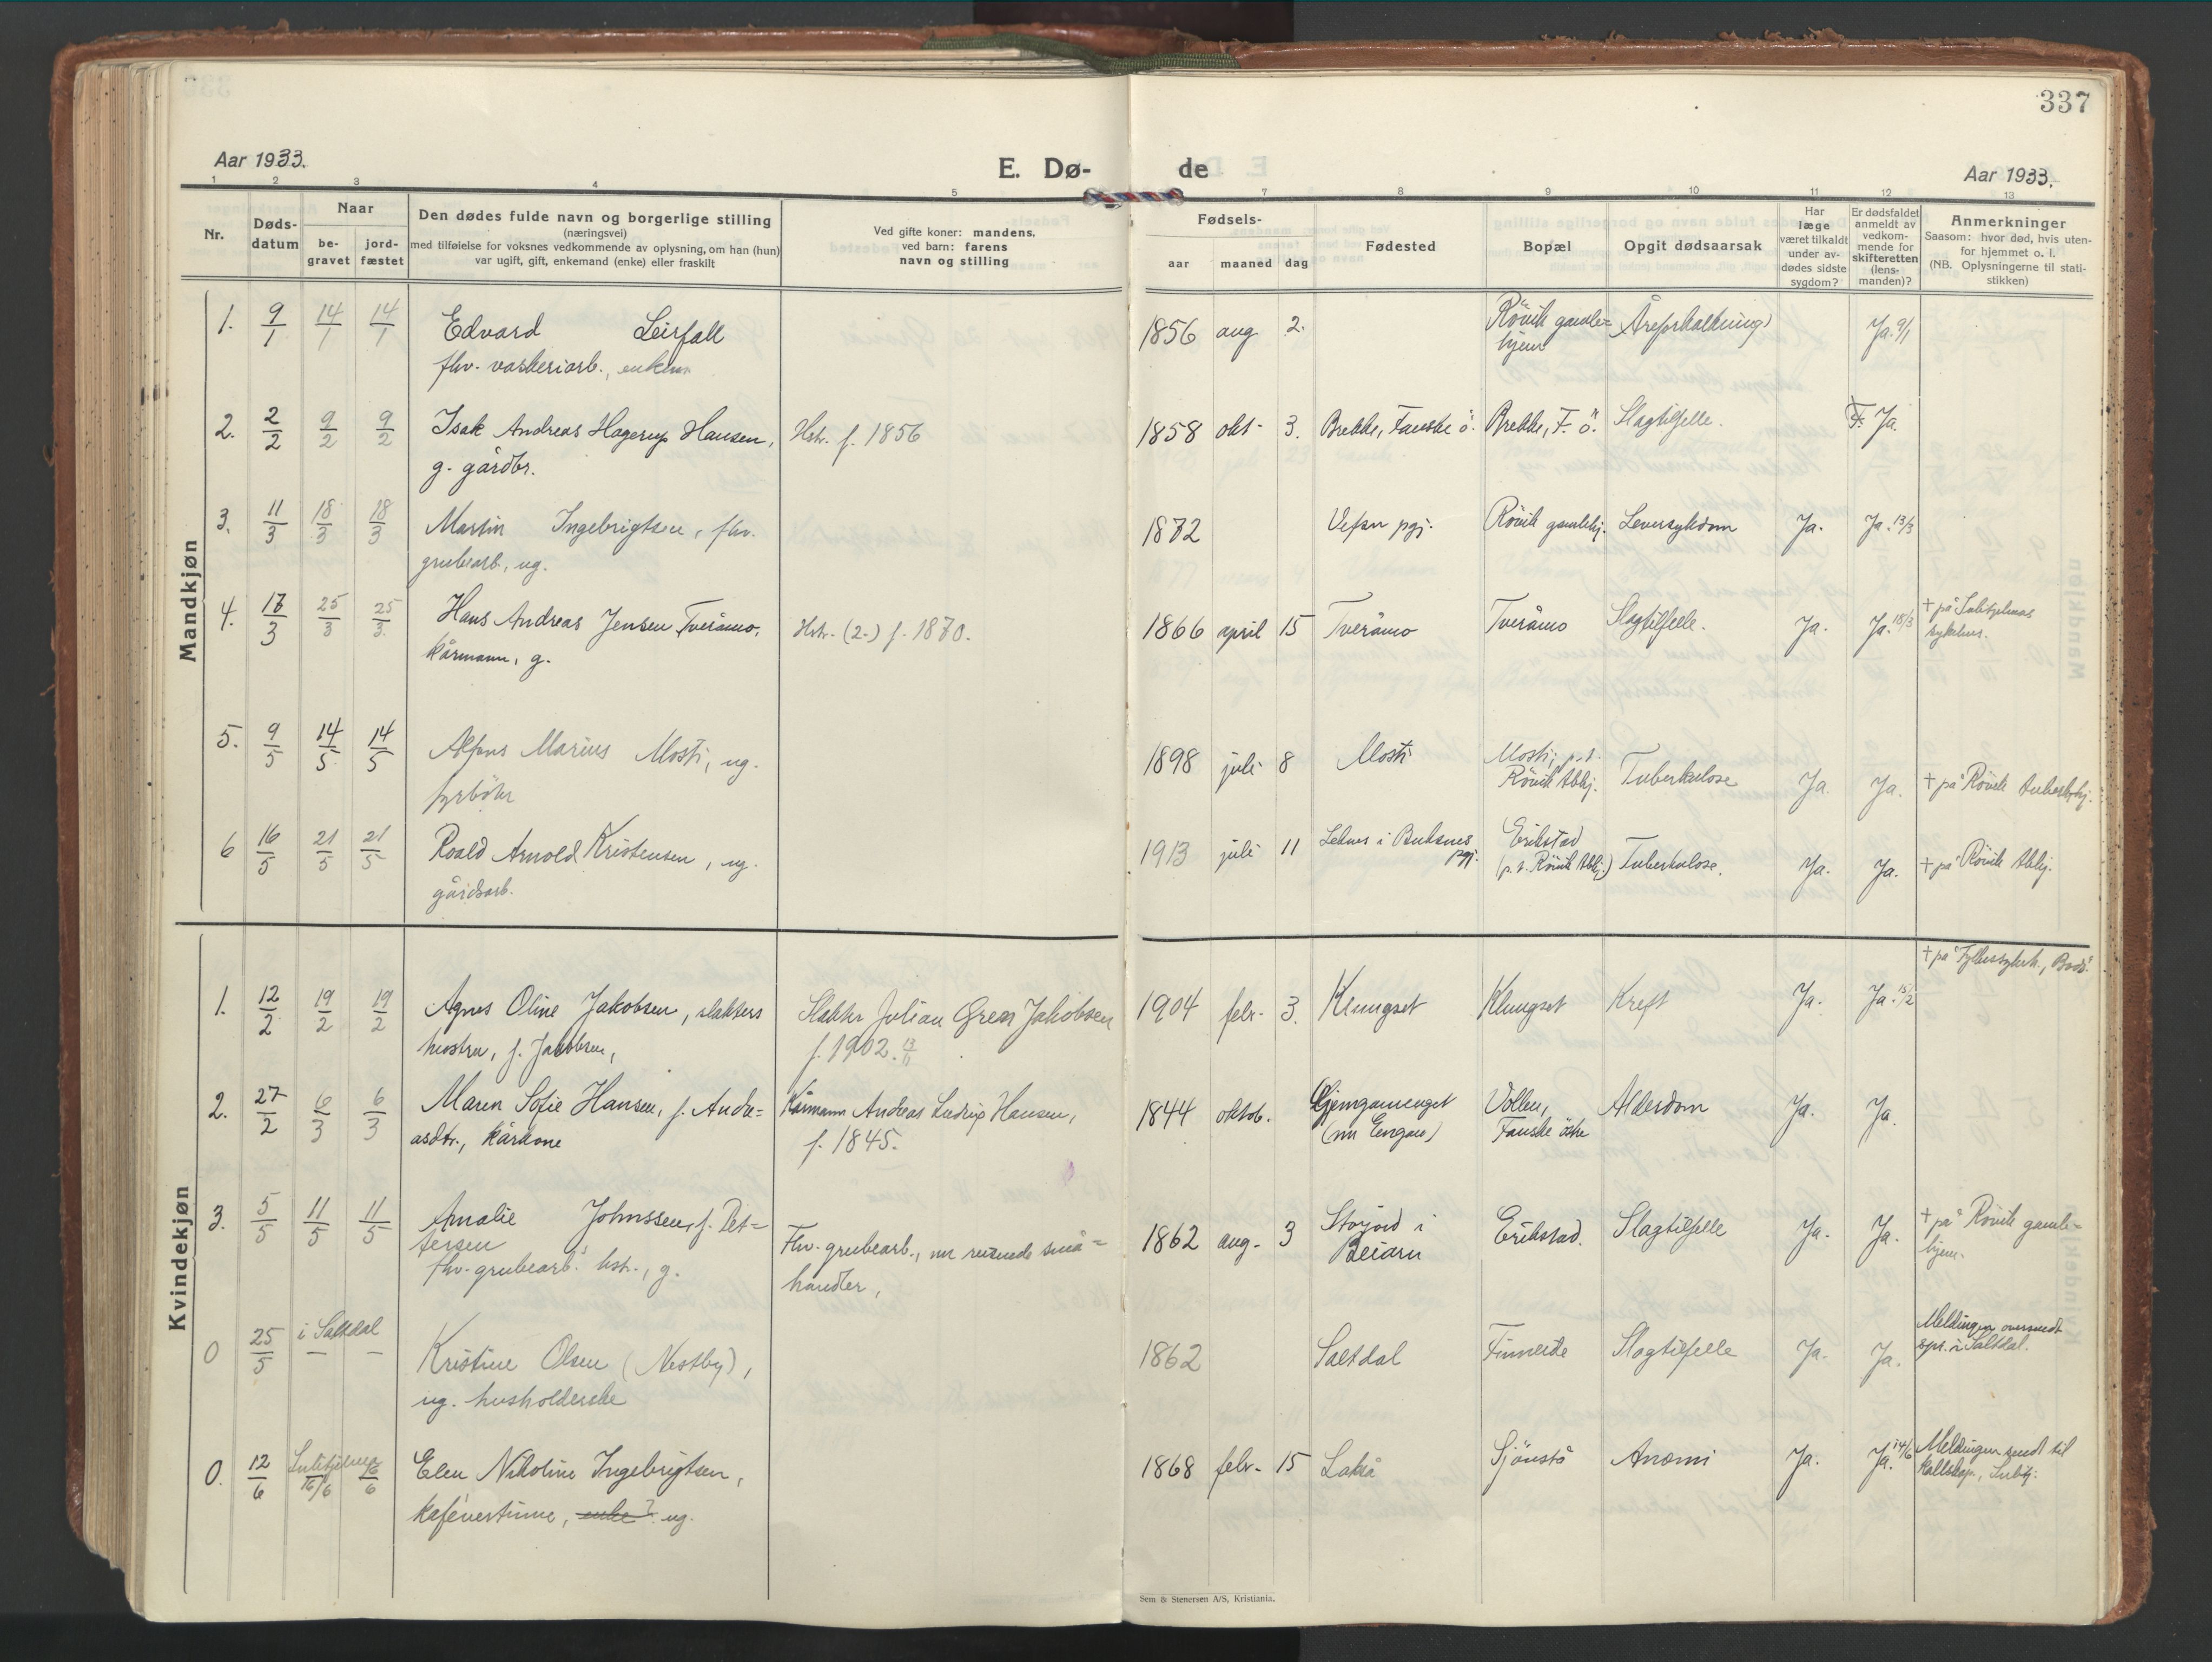 337
Aar 1933.
E. Dø- de
Aar 1933.
1 2 3 4 5 7 8 9 10 11 12 13
Nr.
Døds-
datum
Naar
be-
gravet
jord-
fæstet
Den dødes fulde navn og borgerlige stilling
(næringsvei)
med tilføielse for voksnes vedkommende av oplysning, om han (hun)
var ugift, gift, enkemand (enke) eller fraskilt
Ved gifte koner: mandens,
ved barn: farens
navn og stilling
Fødsels-
aar maaned dag
Fødested
Bopæl
Opgit dødsaarsak
Har
læge
været tilkaldt
under av-
dødes sidste
sygdom?
Er dødsfaldet
anmeldt av
vedkom-
mende for
skifteretten
(lens-
manden)?
Anmerkninger
Saasom: hvor død, hvis uten-
for hjemmet o. l.
(NB. Oplysningerne til stati-
stikken)
Mandkjøn
1. 9/1 14/1 14/1 Edvard Leirfall 1856 aug 2. Røvik gamle= Åreforkalkning Ja. 9/1
fhv. vaskeriarb., enkem. hjem
2. 2/2 9/2 9/2 Isak Andreas Hagerup Hansen, Hstr. f. 1856 1858 okt. 3. Brekke, Fauske ö. Brekke, F. ö. Slagtilfelle. Ja.
g. gårdbr.
3. 11/3 18/3 18/3 Martin Ingebrigtsen, fhv. 1872 Vefsn pgj. Røvik gamlehj. Leversykdom Ja. Ja. 13/3
grubearb, ug.
4. 17/3 25/3 25/3 Hans Andreas Jensen Tveråmo, Hstr. (2.) f. 1870. 1866 april 15 Tveråmo Tveråmo Slagtilfelle. Ja. Ja. 18/3 + på Sulitjelmas
kårmann, g. sykehus.
5. 9/5 14/5 14/5 Alfons Marius Mosti, ug. 1898 juli 8 Mosti Mosti, p.t. Tuberkulose Ja. Ja. + på Røvik tuberk.hj.
fyrbøter Røvik tbhj.
6 16/5 21/5 21/5 Roald Arnold Kristensen, ug. 1913 juli 11 Leknes i Buksnes pgj. Erikstad Tuberkulose. Ja. Ja. + på Røvik tbhj.
gårdsarb. (p.t. Røvik tbhj.)
Kvindekjøn
+ på Fylkessykeh., Bodö.
1. 12/2 19/2 19/2 Agnes Oline Jakobsen, slakters Slakter Julian Green Jakobsen 1904 febr. 3. Klungset Klungset Kreft Ja. Ja. 15/2
hustru, f. Jakobsen, f. 1902. 13/11
2. 27/2 6/3 6/3 Maren Sofie Hansen, f. Andre= Kårmann Andreas Ludvig Hansen, 1844 oktob. Gjemgamenget Vollen, Alderdom Ja. Ja.
asdtr., kårkone f. 1845. (nu Engan) Fauske östre
3. 5/5 11/5 11/5 Amalie Johnssen, f. Pet= 1862 aug. 3 Storjord i Erikstad. Slagtilfelle Ja. Ja. + på Røvik gamle=
tersen Fhv. grubearb., nu reisende små= Beiarn hjem.
fhv. grubearb.'s hst., g. handler,
0 25/5 i Saltdal — — Kristine Olsen (Nestby), 1862 Saltdal Finneide Slagtilfelle Ja. Ja. Meldingen oversendt
ug. husholderske spr. i Saltdal.
0. 12/6 Sulitjelma 16/6 16/6 Elen Nikoline Ingebrigtsen, 1868 febr. 15 Lakså Sjönstå Anæmi Ja. Ja. 14/6 Meldingen sendt til
kafévertinne, enke? ug. kallskap., Sulitj.
Sem & Stenersen A/S, Kristiania.